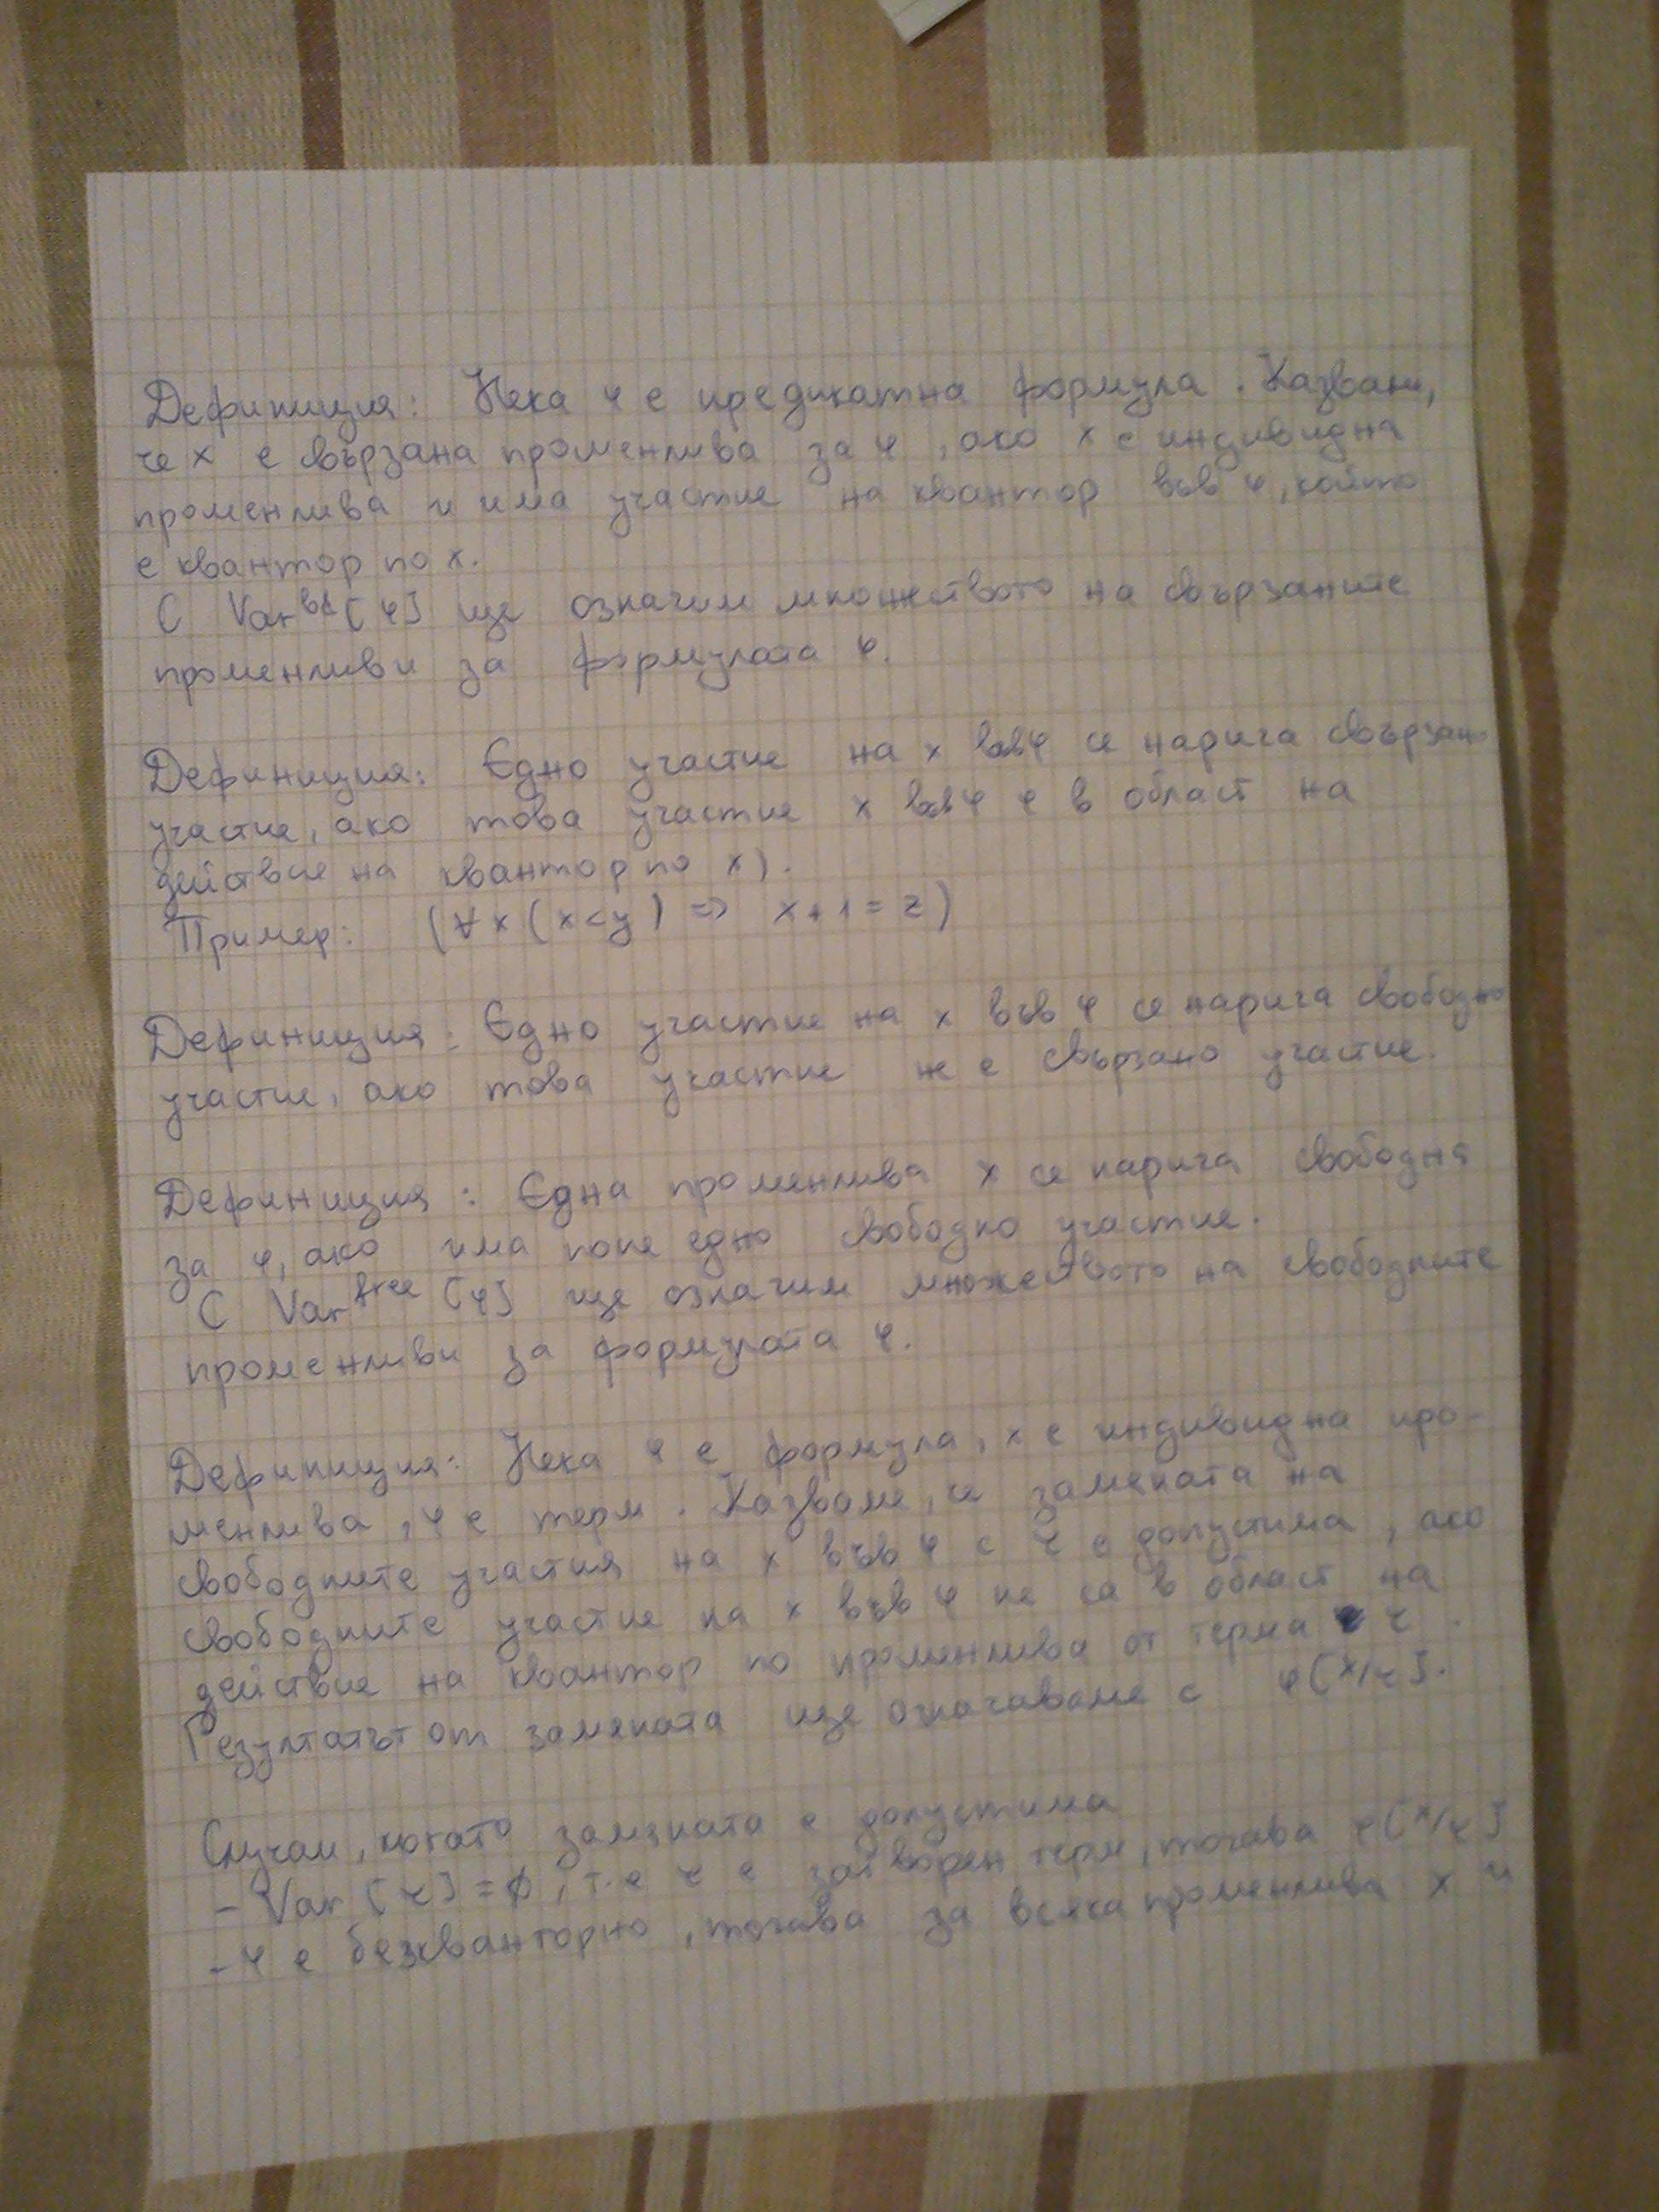 Дефиниция: Нека φ е предикатна формула. Казваме,
че x е свързана променлива за φ, ако x е индивидна
променлива и има участие на квантор във φ, който
е квантор по x.
С Var^bd[φ] ще означим множеството на свързаните
променливи за формулата φ.
Дефиниция: Едно участие на x във φ се нарича свързано
участие, ако това участие x във φ е в област на
действие на квантор по x).
Пример: (∀x(x<y) => x+1=z)
Дефиниция: Едно участие на x във φ се нарича свободно
участие, ако това участие не е свързано участие.
Дефиниция: Една променлива x се нарича свободна
за φ, ако има поне едно свободно участие.
С Var^free[φ] ще означим множеството на свободните
променливи за формулата φ.
Дефиниция: Нека φ е формула, x е индивидна про-
менлива, τ е терм. Казваме, че замената на
свободните участия на x във φ с τ е допустима, ако
свободните участие на x във φ не са в област на
действие на квантор по променлива от терма τ.
Резултатът от замяната ще означаваме с φ[x/τ].
Случаи, когато замяната е допустима
- Var[τ]=∅, т.е τ е затворен терм, тогава φ[x/τ]
- φ е безкванторно, тогава за всяка променлива x и